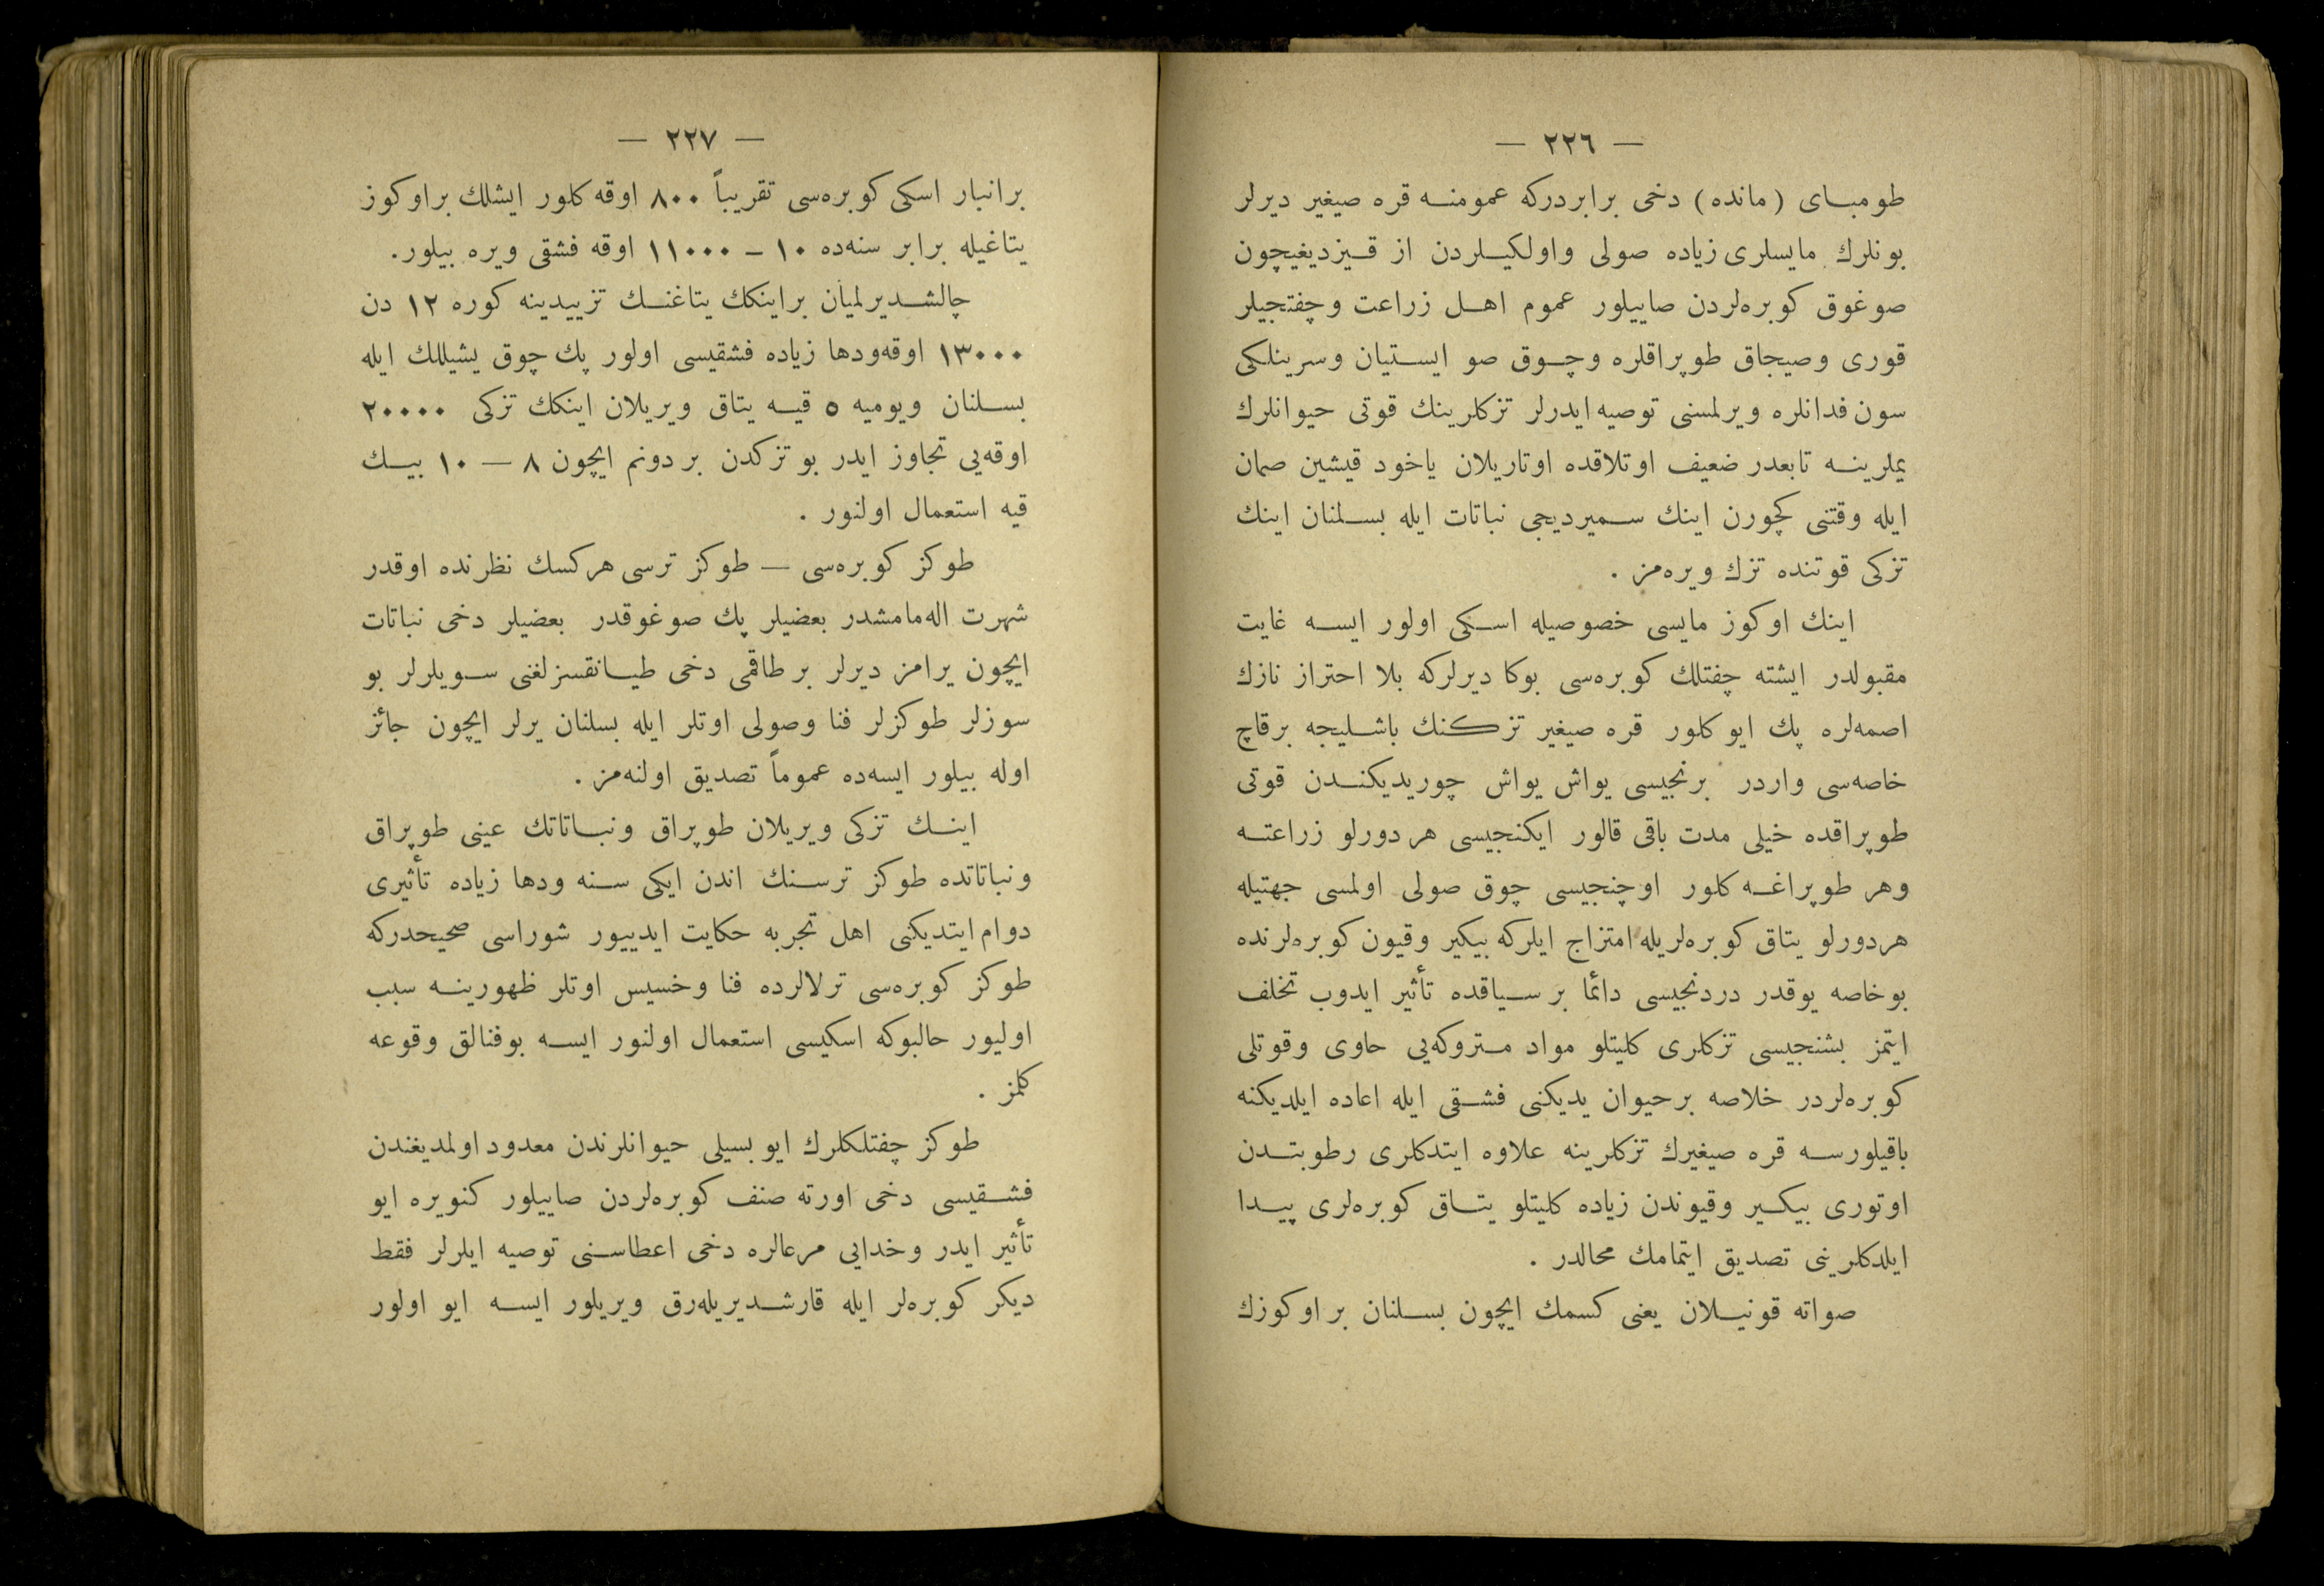 — ٢٢٦ —
طومبـای (مانده) دخی برابردركه عمومنـه قره صیغیر دیرلر
بونلرك مایسلری زیاده صولی واولكیـلردن از قـیزدیغیچون
صوغوق كوبره‌لردن صاییلور عموم اهـل زراعت وچفتجیلر
قوری وصیجاق طوپراقلره وچـوق صو ایسـتیان وسرینلكی
سون فدانلره ویرلمسنی توصیه ایدرلر تزكلرینك قوتی حیوانلرك
یملرینـه تابعدر ضعیف اوتلاقده اوتاریلان یاخود قیشین صمان
ایله وقتنی كچورن اینك سـمیردیجی نباتات ایله بسـلنان اینك
تزكی قوتنده تزك ویره‌مز .
اینك اوكوز مایسی خصوصیله اسـكی اولور ایسـه غایت
مقبولدر ایشته چفتلك كوبره‌سی بوكا دیرلركه بلا احتراز نازك
اصمه‌لره پك ایو كلور قره صیغیر تزكنك باشـلیجه برقاچ
خاصه‌سی واردر برنجیسی یواش یواش چوریدیكنـدن قوتی
طوپراقده خیلی مدت باقی قالور ایكنجیسی هر دورلو زراعتـه
وهر طوپراغـه كلور اوچنجیسی چوق صولی اولمسی جهتیله
هردورلو یتاق كوبره‌لریله امتزاج ایلركه بیكیر وقیون كوبره‌لرنده
بوخاصه یوقدر دردنجیسی دائما بر سـیاقده تأثیر ایدوب تخلف
ایتمز بشنجیسی تزكلری كلیتلو مواد مـتروكه‌یی حاوی وقوتلی
كوبره‌لردر خلاصه برحیوان یدیكنی فشـقی ایله اعاده ایلدیكنه
باقیلورسـه قره صیغیرك تزكلرینه علاوه ایتدكلری رطوبتـدن
اوتوری بیكـیر وقیوندن زیاده كلیتلو یتـاق كوبره‌لری پیـدا
ایلدكلرینی تصدیق ایتمامك محالدر .
صواته قونیـلان یعنی كسمك ایچون بسـلنان بر اوكوزك
— ٢٢٧ —
برانبار اسكی كوبره‌سی تقریباً ٨٠٠ اوقه كلور ایشلك براوكوز
یتاغیله برابر سنه‌ده ١٠ – ١١٠٠٠ اوقه فشقی ویره بیلور.
چالشـدیرلمیان براینكك یتاغنـك تزییدینه كوره ١٢ دن
١٣٠٠٠ اوقه‌ودها زیاده فشقیسی اولور پك چوق یشیللك ایله
بسـلنان ویومیه ٥ قیـه یتاق ویریلان اینكك تزكی ٢٠٠٠٠
اوقه‌یی تجاوز ایدر بو تزكدن بر دونم ایچون ٨ — ١٠ بیـك
قیه استعمال اولنور .
طوكز كوبره‌سی — طوكز ترسی هركسك نظرنده اوقدر
شهرت اله‌مامشدر بعضیلر پك صوغوقدر بعضیلر دخی نباتات
ایچون یرامز دیرلر بر طاقمی دخی طیـانقسزلغنی سـویلرلر بو
سوزلر طوكزلر فنا وصولی اوتلر ایله بسلنان یرلر ایچون جائز
اوله بیلور ایسه‌ده عموماً تصدیق اولنه‌مز .
اینـك تزكی ویریلان طوپراق ونبـاتاتك عینی طوپراق
ونباتاتده طوكز ترسـنك اندن ایكی سـنه ودها زیاده تأثیری
دوام ایتدیكنی اهل تجربه حكایت ایدییور شوراسی صحیحدركه
طوكز كوبره‌سی ترلالرده فنا وخسیس اوتلر ظهورینـه سبب
اولیور حالبوكه اسكیسی استعمال اولنور ایسـه بوفنالق وقوعه
كلمز .
طوكز چفتلكلرك ایو بسیلی حیوانلرندن معدود اولمدیغندن
فشـقیسی دخی اورته صنف كوبره‌لردن صاییلور كنویره ایو
تأثیر ایدر وخدایی مرعالره دخی اعطاسـنی توصیه ایلرلر فقط
دیكر كوبره‌لر ایله قارشـدیریله‌رق ویریلور ایسـه ایو اولور